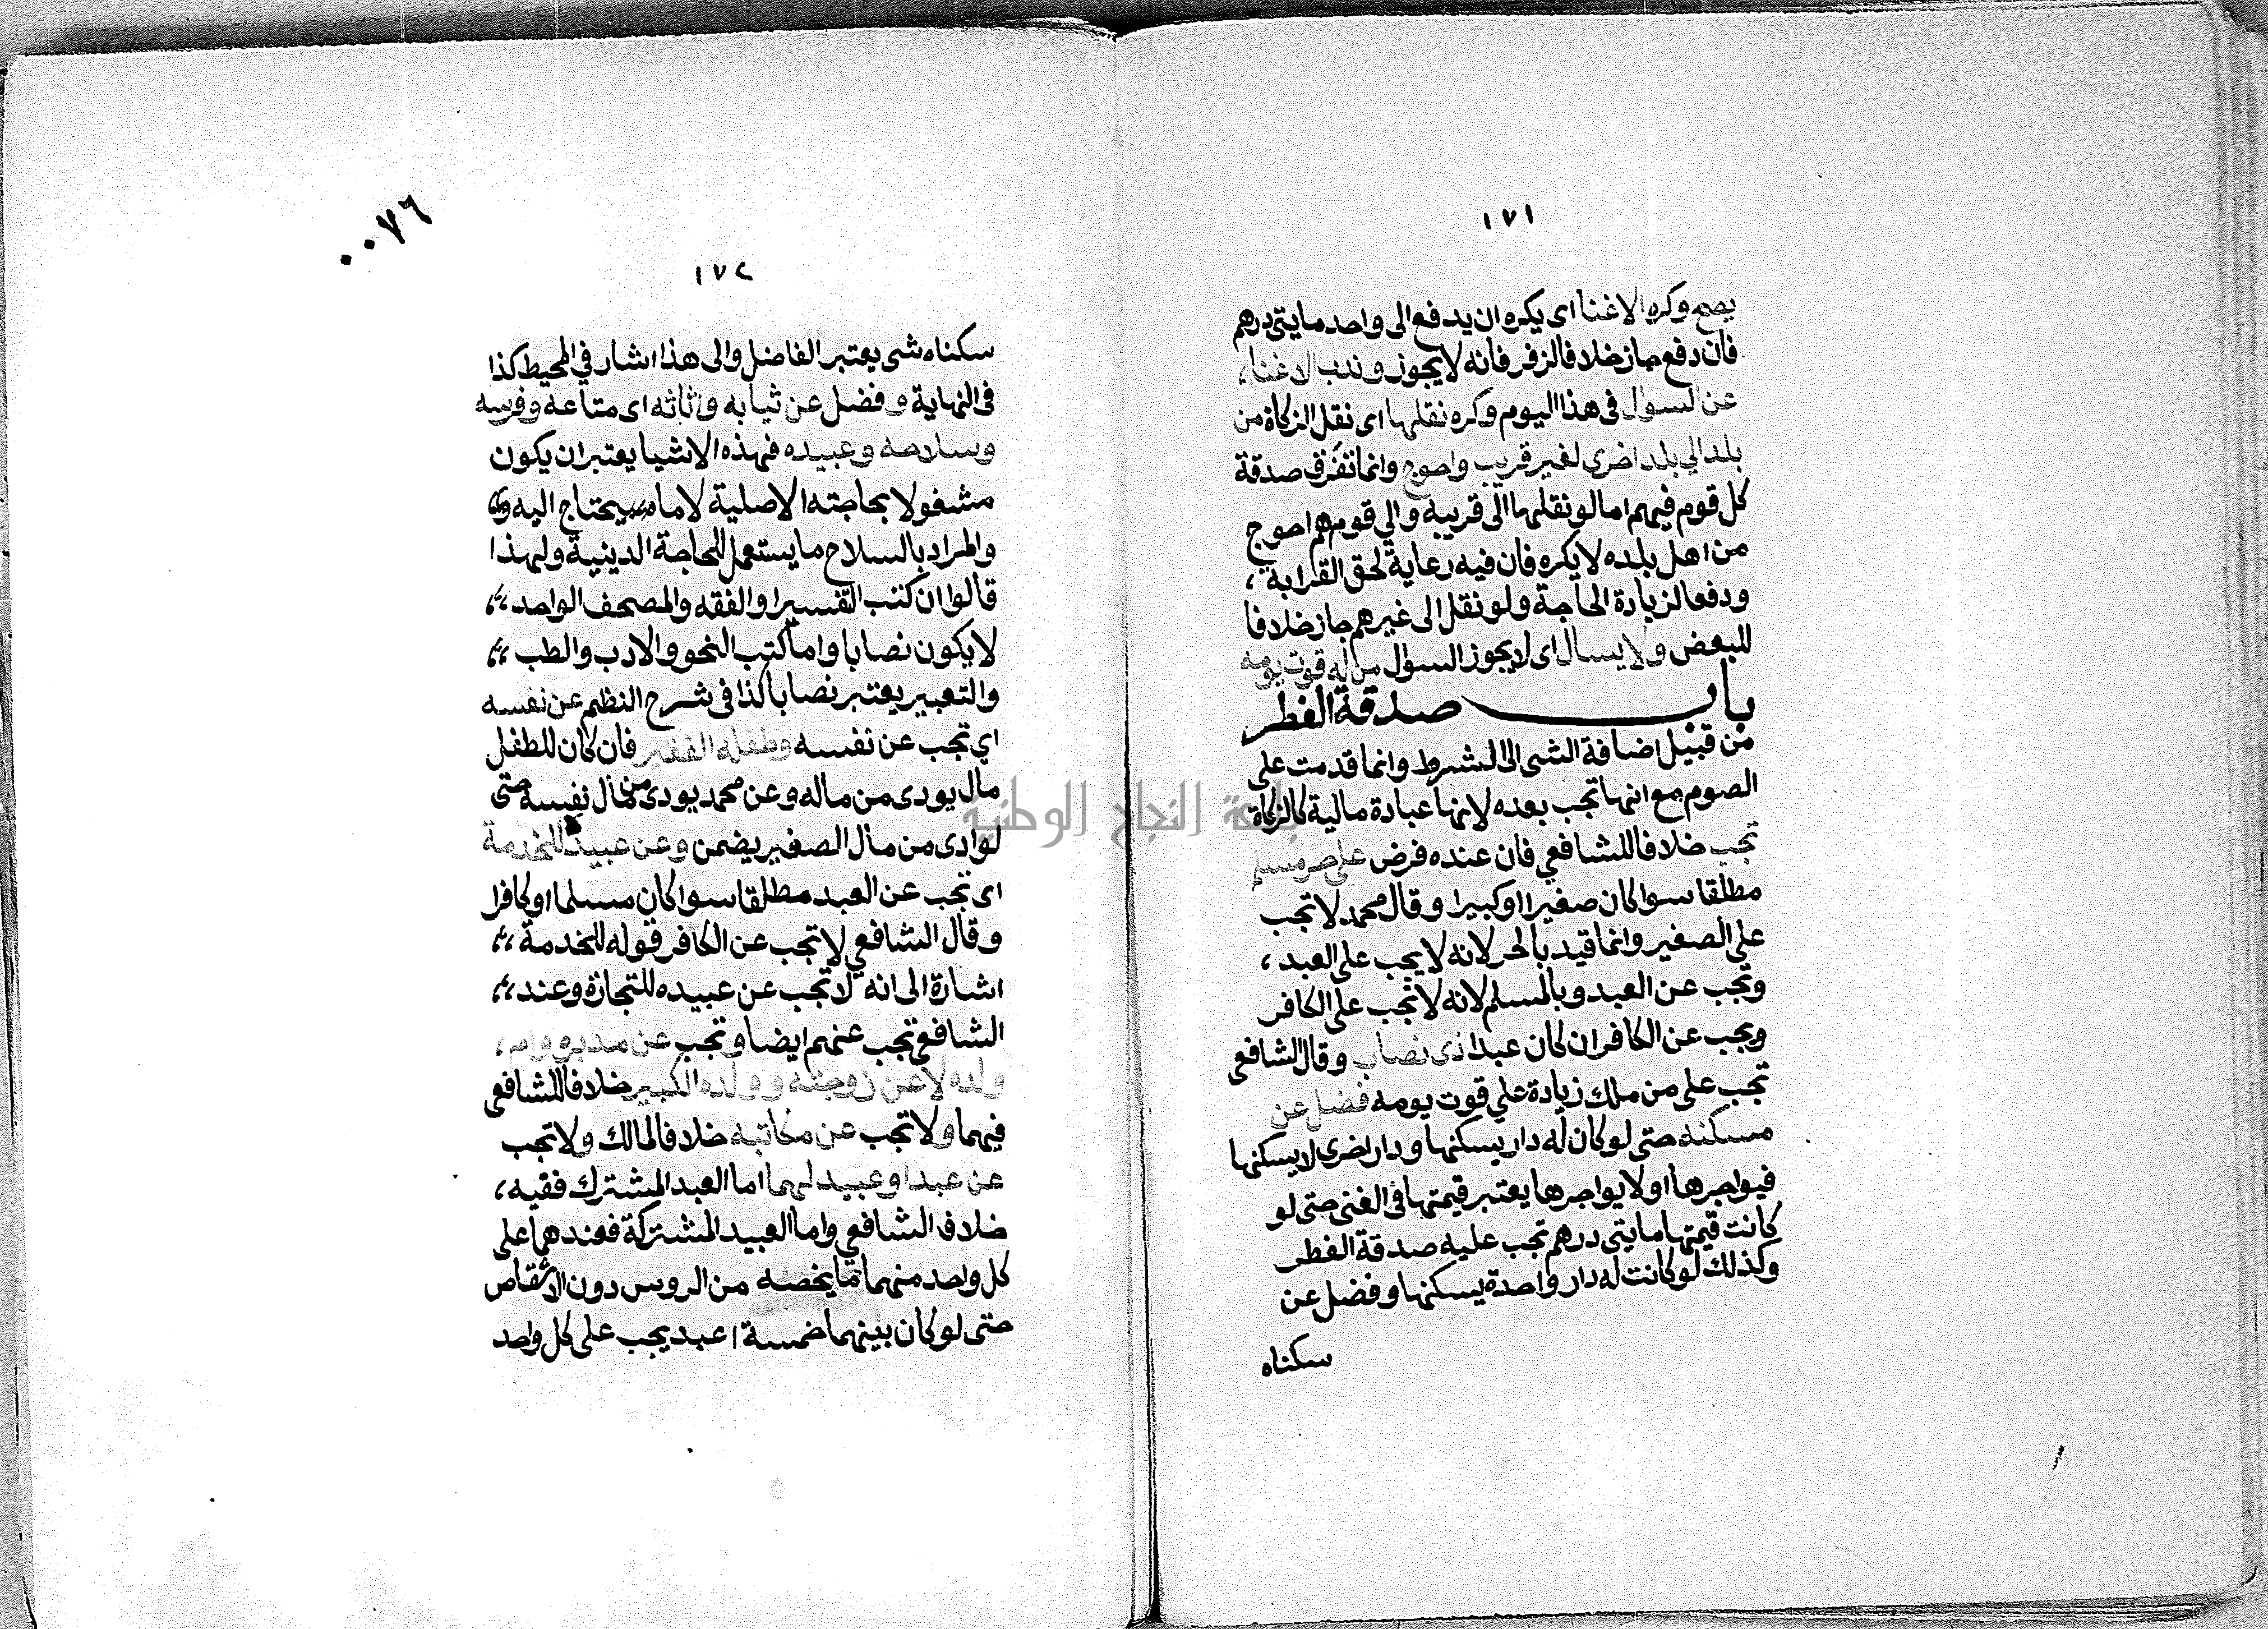 ١٧١
يصح وكره الاغنا اى يكره ان يدفع الى واحد مايتى درهم
فان دفع جاز خلافا لزفر فانه لا يجوز وندب الاغناء
عن السوال فى هذا اليوم وكره نقلها اى نقل الزكاة من
بلد الي بلد اخرى لغير قريب واحوج وانما تفرق صدقة
كل قوم فيهم اما لو نقلها الى قريبه والي قوم هم احوج
من اهل بلده لا يكره فان فيه رعاية لحق القرابة ،
ودفعا لزيادة الحاجة ولو نقل الى غيرهم جاز خلافا
للبعض ولا يسال اى لا يجوز السوال من له قوت يومه
باب صدقة الفطر
من قبيل اضافة الشى الى الشرط وانما قدمت على
الصوم مع انها تجب بعده لانها عبادة مالية كالزكاة
تجب خلافا للشافعي فان عنده فرض على حر مسلم
مطلقا سوا كان صغيرا اوكبيرا وقال محمد لا تجب
علي الصغير وانما قيد بالحر لانه لا يجب على العبد ،
وتجب عن العبد وبالمسلم لانه لا تجب على الكافر
ويجب عن الكافر ان كان عبدا ذى نصاب وقال الشافعى
تجب على من ملك زيادة علي قوت يومه فضل عن
مسكنه حتى لو كان له دار يسكنها ودار اخرى لا يسكنها
فيواجرها او لا يواجرها يعتبر قيمتها فى الغنى حتى لو
كانت قيمتها مايتى درهم تجب عليه صدقة الفطر
وكذلك لو كانت له دار واحدة يسكنها وفضل عن
سكناه
٠٠٧٦
١٧٢
سكناه شى يعتبر الفاضل والى هذا اشار في المحيط كذا
فى النهاية وفضل عن ثيابه واثاثه اى متاعه وفرسه
وسلاحه وعبيده فهذه الاشيا يعتبر ان يكون
مشغولا بحاجته الاصلية لا ما يحتاج اليه
والمراد بالسلاح ما يستعمل للحاجة الدينية ولهذا
قالوا ان كتب التفسير والفقه والمصحف الواحد
لا يكون نصابا واما كتب النحو والادب والطب
والتعبير يعتبر نصابا كذا فى شرح النظم عن نفسه
اي تجب عن نفسه وطفله الفقير فان كان للطفل
مال يودى من ماله وعن محمد يودى من مال نفسه حتى
لو ادى من مال الصغير يضمن وعن عبيده للخدمة
اى تجب عن العبد مطلقا سوا كان مسلما او كافرا
وقال الشافعي لا تجب عن الكافر قوله للخدمة
اشارة الى انه لا تجب عن عبيده للتجارة وعند
الشافعى تجب عنهم ايضا وتجب عن مدبره وام ،
ولده لا عن زوجته وولده الكبير خلافا للشافعى
فيهما ولا تجب عن مكاتبه خلافا لمالك ولا تجب
عن عبد او عبيد لهما اما العبد المشترك ففيه ،
خلاف الشافعي واما العبيد المشتركة فعندهما على
كل واحد منهما ما يخصه من الروس دون الاشقاص
حتى لو كان بينهما خمسة اعبد يجب على كل واحد
جامعة النجاح الوطنية